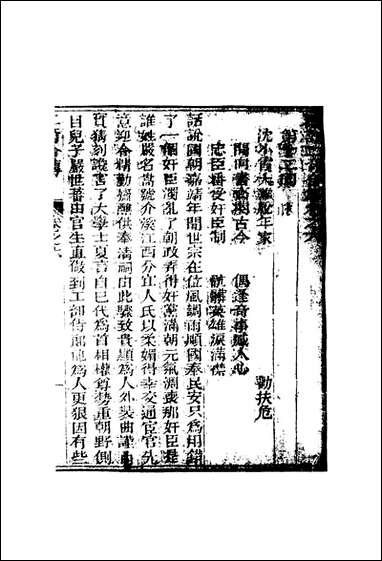 沈小霞大難投年家
勸扶危
閒向書齋閱古今　偶逢奇事感人心
忠臣番受奸臣制　骯髒英雄淚滿
話說國朝嘉靖年間世宗在位風調雨順國泰民安只為用錯
了一個奸臣濁亂了朝政弄得奸黨滿朝元氣凋喪那奸臣是
誰姓嚴名嵩號介溪江西分宜人氏以柔媚得幸交通宦官先
意迎合精勤齋醮供奉清詞由此驟致貴顯為人外裝曲謹內
實猜刻讒害了大學士夏言自己代為首相權尊勢重朝野側
目兒子嚴世蕃由官生直做到工部侍郎他為人更狠因有些
二奇合傳